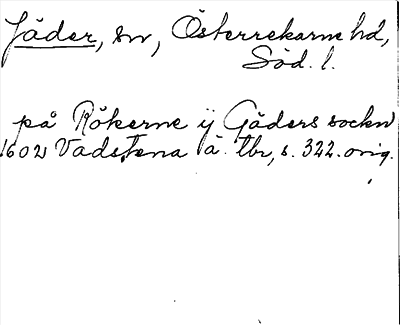 Jäder, sn, Österrekarne hd,
Söd. l.
på Rökerne ij Gäders sockn
1602 Vadstena ä. tbr, s. 322. orig.